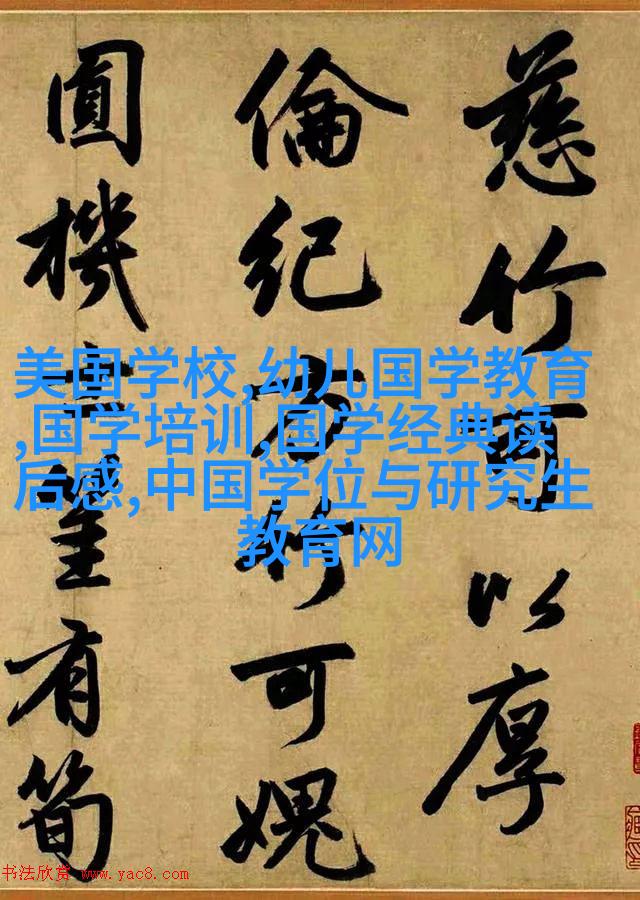 慈竹可以厚
倫紀方竹可媿
圓機有筍
美国学校,幼儿国学教育
,国学培训,国学经典读
后感,中国学位与研究生
教育网
书法欣赏 www.yac8.com